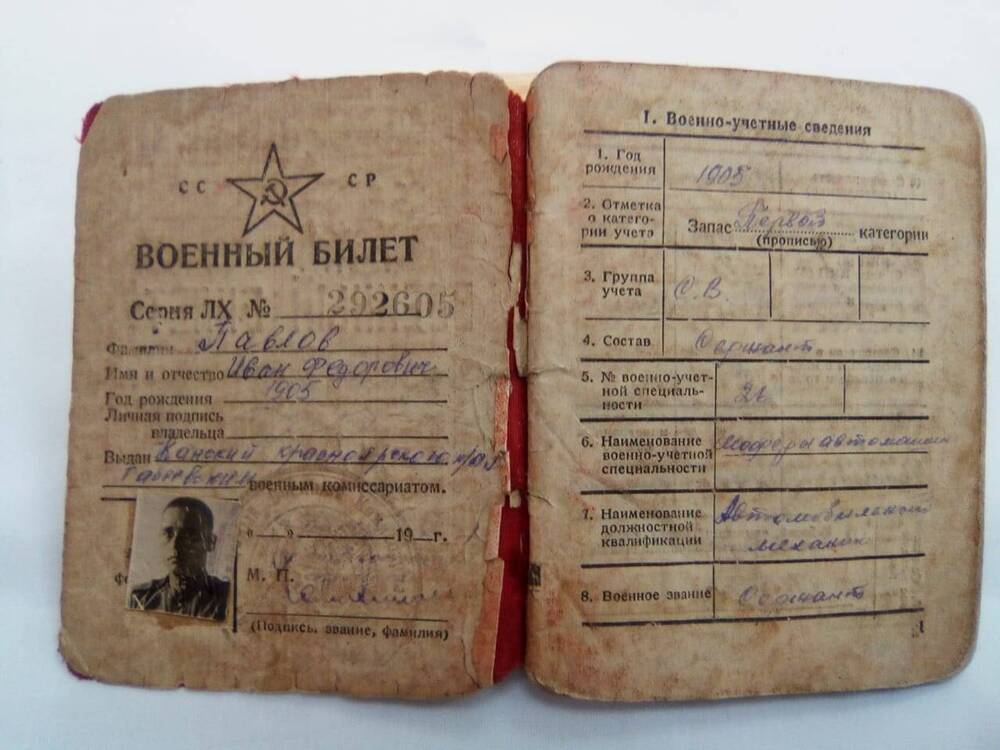 СС СР
ВОЕННЫЙ БИЛЕТ
Серия ЛХ № 292605
Фамилия Павлов
Имя и отчество Иван Федорович
Год рождения 1905
Личная подпись
владельца
Выдан Канский Красноярского края
военным комиссариатом.
„ — “ 19 — г.
М. П.
(Подпись, звание, фамилия)
I. Военно-учетные сведения
1. Год
рождения 1905
2. Отметка
о катего-
рии учета Запас Первой категории
(прописью)
3. Группа
учета С.В.
4. Состав Сержант
5. № военно-учет-
ной специаль-
ности 26
6. Наименование
военно-учетной
специальности Шоферы автомашин
7. Наименование
должностной
квалификации Автомобильный
механик
8. Военное звание Сержант
1